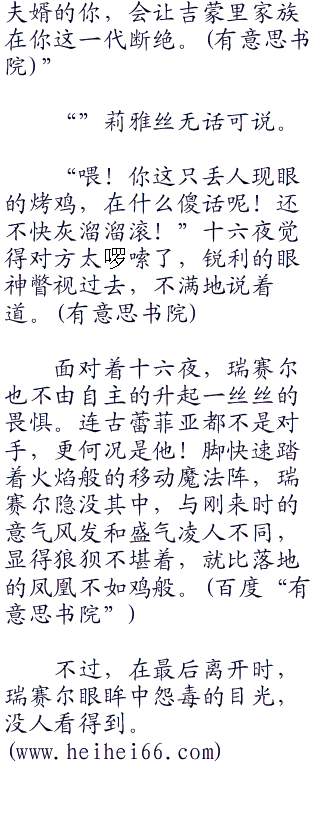 夫婿的你，会让吉蒙里家族
在你这一代断绝。(有意思书
院)”
“”莉雅丝无话可说。
“喂！你这只丢人现眼
的烤鸡，在什么傻话呢！还
不快灰溜溜滚！”十六夜觉
得对方太啰嗦了，锐利的眼
神瞥视过去，不满地说着
道。(有意思书院)
面对着十六夜，瑞赛尔
也不由自主的升起一丝丝的
畏惧。连古蕾菲亚都不是对
手，更何况是他！脚快速踏
着火焰般的移动魔法阵，瑞
赛尔隐没其中，与刚来时的
意气风发和盛气凌人不同，
显得狼狈不堪着，就比落地
的凤凰不如鸡般。(百度“有
意思书院”)
不过，在最后离开时，
瑞赛尔眼眸中怨毒的目光，
没人看得到。
(www.heihei66.com)